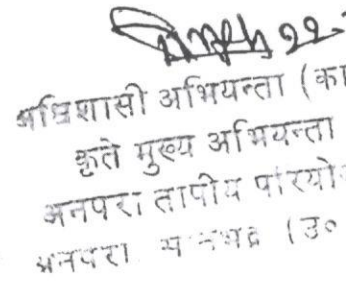 अधिशासी अभियन्ता (का
कृते मुख्य अभियन्ता
अनपरा तापीय परियो
अनपरा (उ०